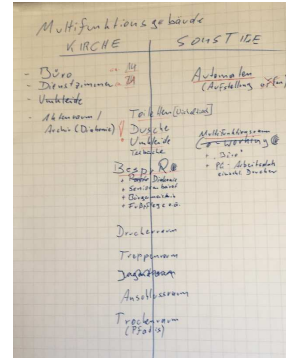 Multifunktionsgebäude
KIRCHE
SONSTIGE
- Büro
- Dienstzimmer
- Umkleide
- Aktenraum /
Archiv (Diakonie)
Automaten
(Aufstellung
Toiletten
Dusche
Umkleide
Teeküche
Multifunktionsraum
Co-working
+ Büro
+ PC-Arbeitsplatz
einschl. Drucker
Bespr.
+ Diakonie
+ Seniorenbeirat
+ Bürgermeister
+
Druckerraum
Treppenraum
Anschlussraum
Trockenraum
(Pfadis)